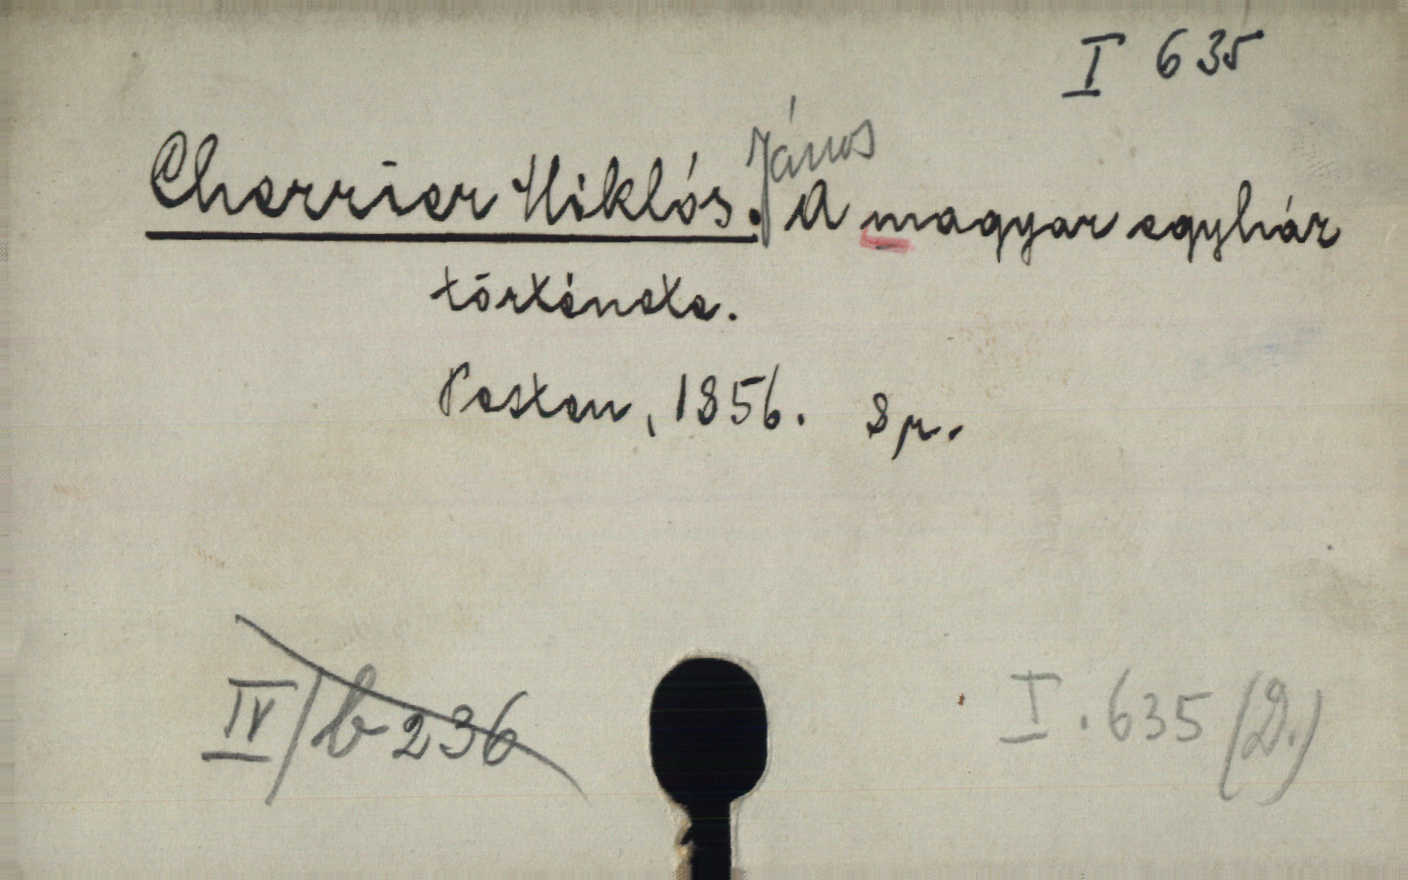 I 635
János
Cherrier Miklós. A magyar egyház
története.
Pesten, 1856. 8r.
IV/b 236
I. 635 (D.)